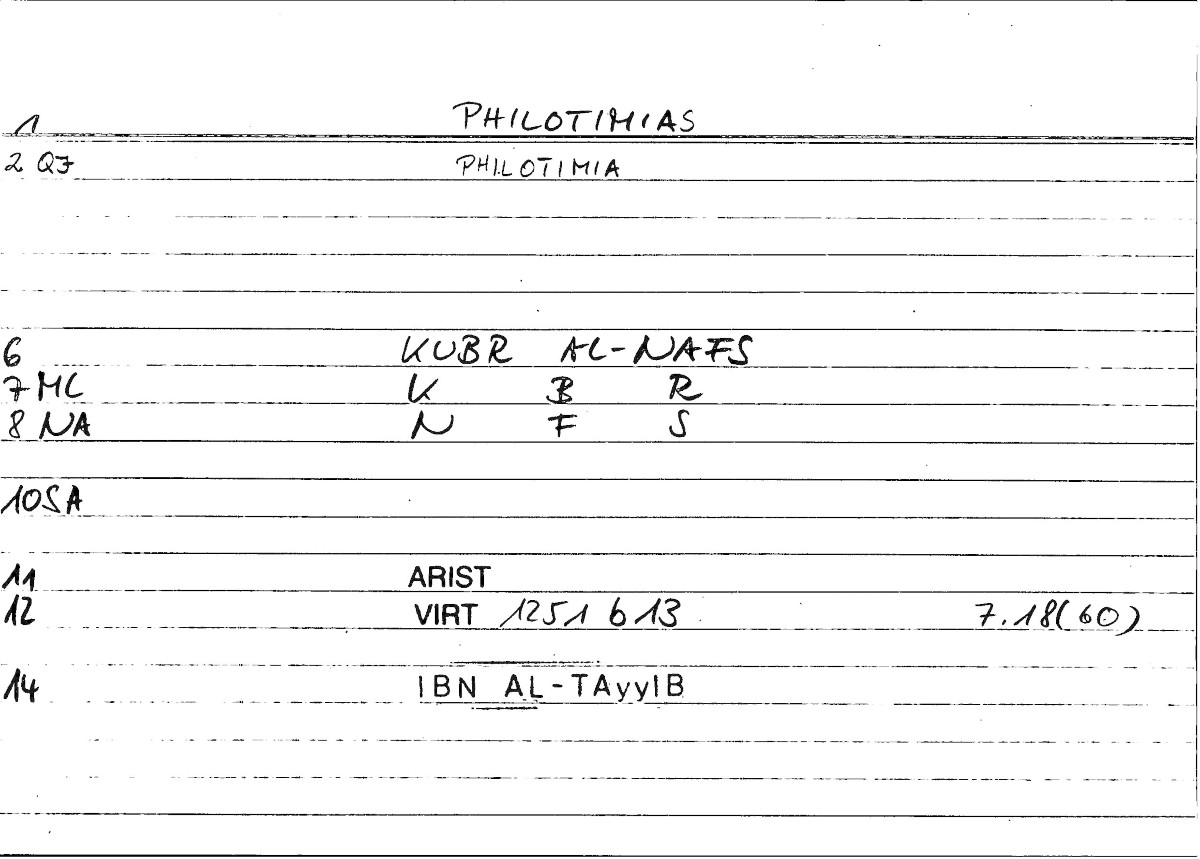 1 PHILOTIMIAS
2 QF PHILOTIMIA
6 KUBR AL-NAFS
7 ML K B R
8 NA N F S
10 SA
11 ARIST
12 VIRT 1251 b 13 7.18(60)
14 IBN AL-TAyyIB